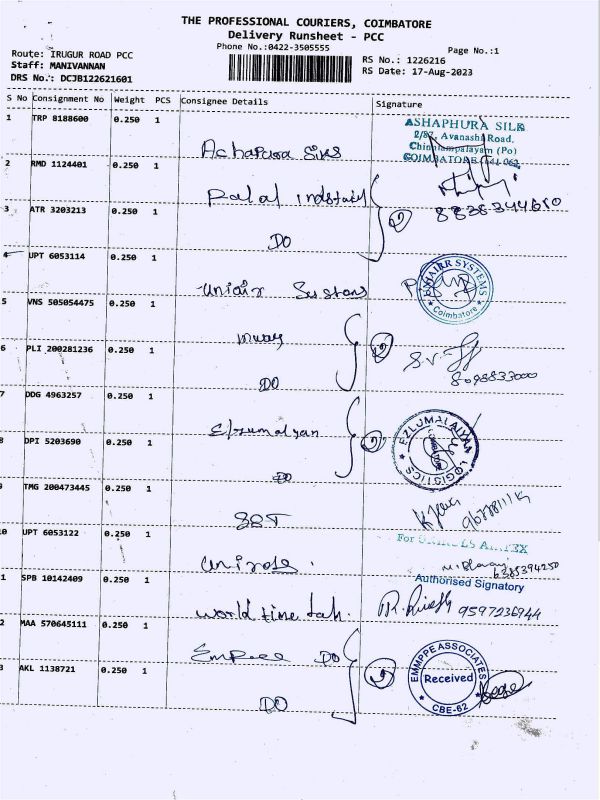 THE PROFESSIONAL COURIERS, COIMBATORE
Delivery Runsheet - PCC
Phone No.:0422-3505555
Page No.:1
Route: IRUGUR ROAD PCC
Staff: MANIVANNAN
DRS No.: DCJB122621601
RS No.: 1226216
RS Date: 17-Aug-2023
S No Consignment No Weight PCS Consignee Details Signature
1 TRP 8188600 0.250 1
ASHAPHURA SILK
2/87, Avanashi Road,
Chinniampalayam (Po)
COIMBATORE-641 062
2 RMD 1124401 0.250 1
3 ATR 3203213 0.250 1
DO
4 UPT 6053114 0.250 1
SYSTEMS
Coimbatore
5 VNS 505054475 0.250 1
6 PLI 200281236 0.250 1
DO
7 DDG 4963257 0.250 1
EZLUMALAIYAN LOGISTICS
8 DPI 5203690 0.250 1
DO
9 TMG 200473445 0.250 1
10 UPT 6053122 0.250 1
For
6385394250
Authorised Signatory
1 SPB 10142409 0.250 1
world time
9597236944
2 MAA 570645111 0.250 1
DO
EMMPPE ASSOCIATES
Received
CBE-62
3 AKL 1138721 0.250 1
DO